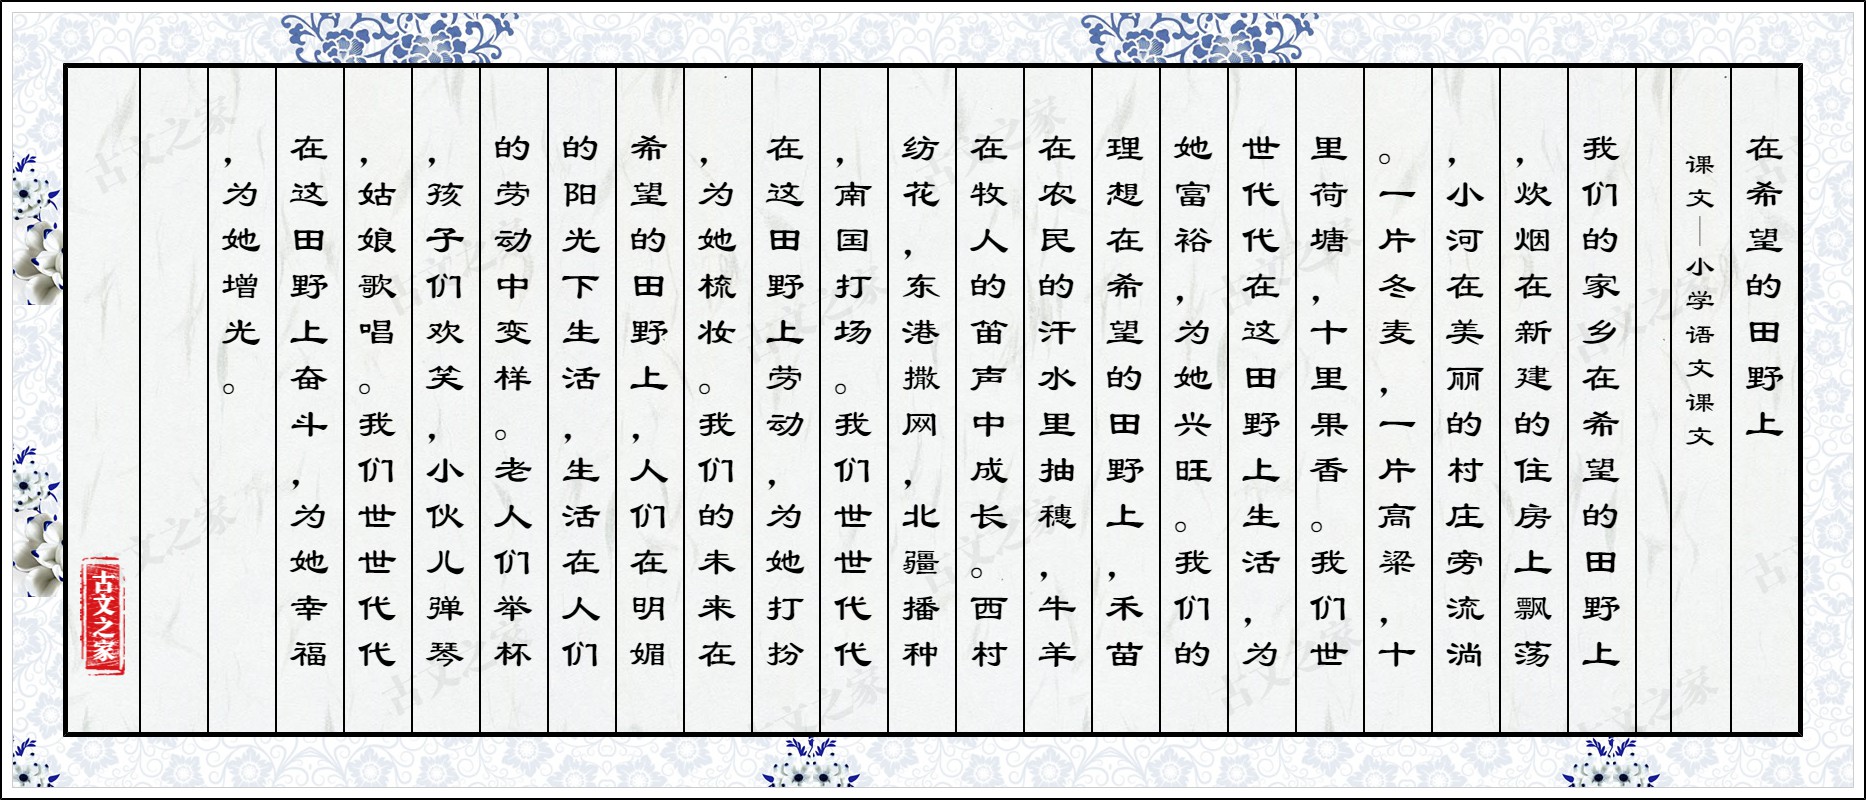 在希望的田野上
课文｜小学语文课文
我们的家乡在希望的田野上
，炊烟在新建的住房上飘荡
，小河在美丽的村庄旁流淌
。一片冬麦，一片高粱，十
里荷塘，十里果香。我们世
世代代在这田野上生活，为
她富裕，为她兴旺。我们的
理想在希望的田野上，禾苗
在农民的汗水里抽穗，牛羊
在牧人的笛声中成长。西村
纺花，东港撒网，北疆播种
，南国打场。我们世世代代
在这田野上劳动，为她打扮
，为她梳妆。我们的未来在
希望的田野上，人们在明媚
的阳光下生活，生活在人们
的劳动中变样。老人们举杯
，孩子们欢笑，小伙儿弹琴
，姑娘歌唱。我们世世代代
在这田野上奋斗，为她幸福
，为她增光。
古文之家